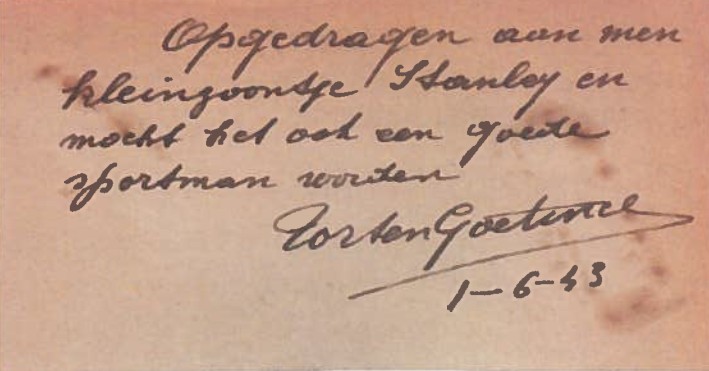 Opgedragen aan men
kleinzoontje Stanley en
mocht het ook een goede
sportman worden
Torten Goethnee
1-6-43